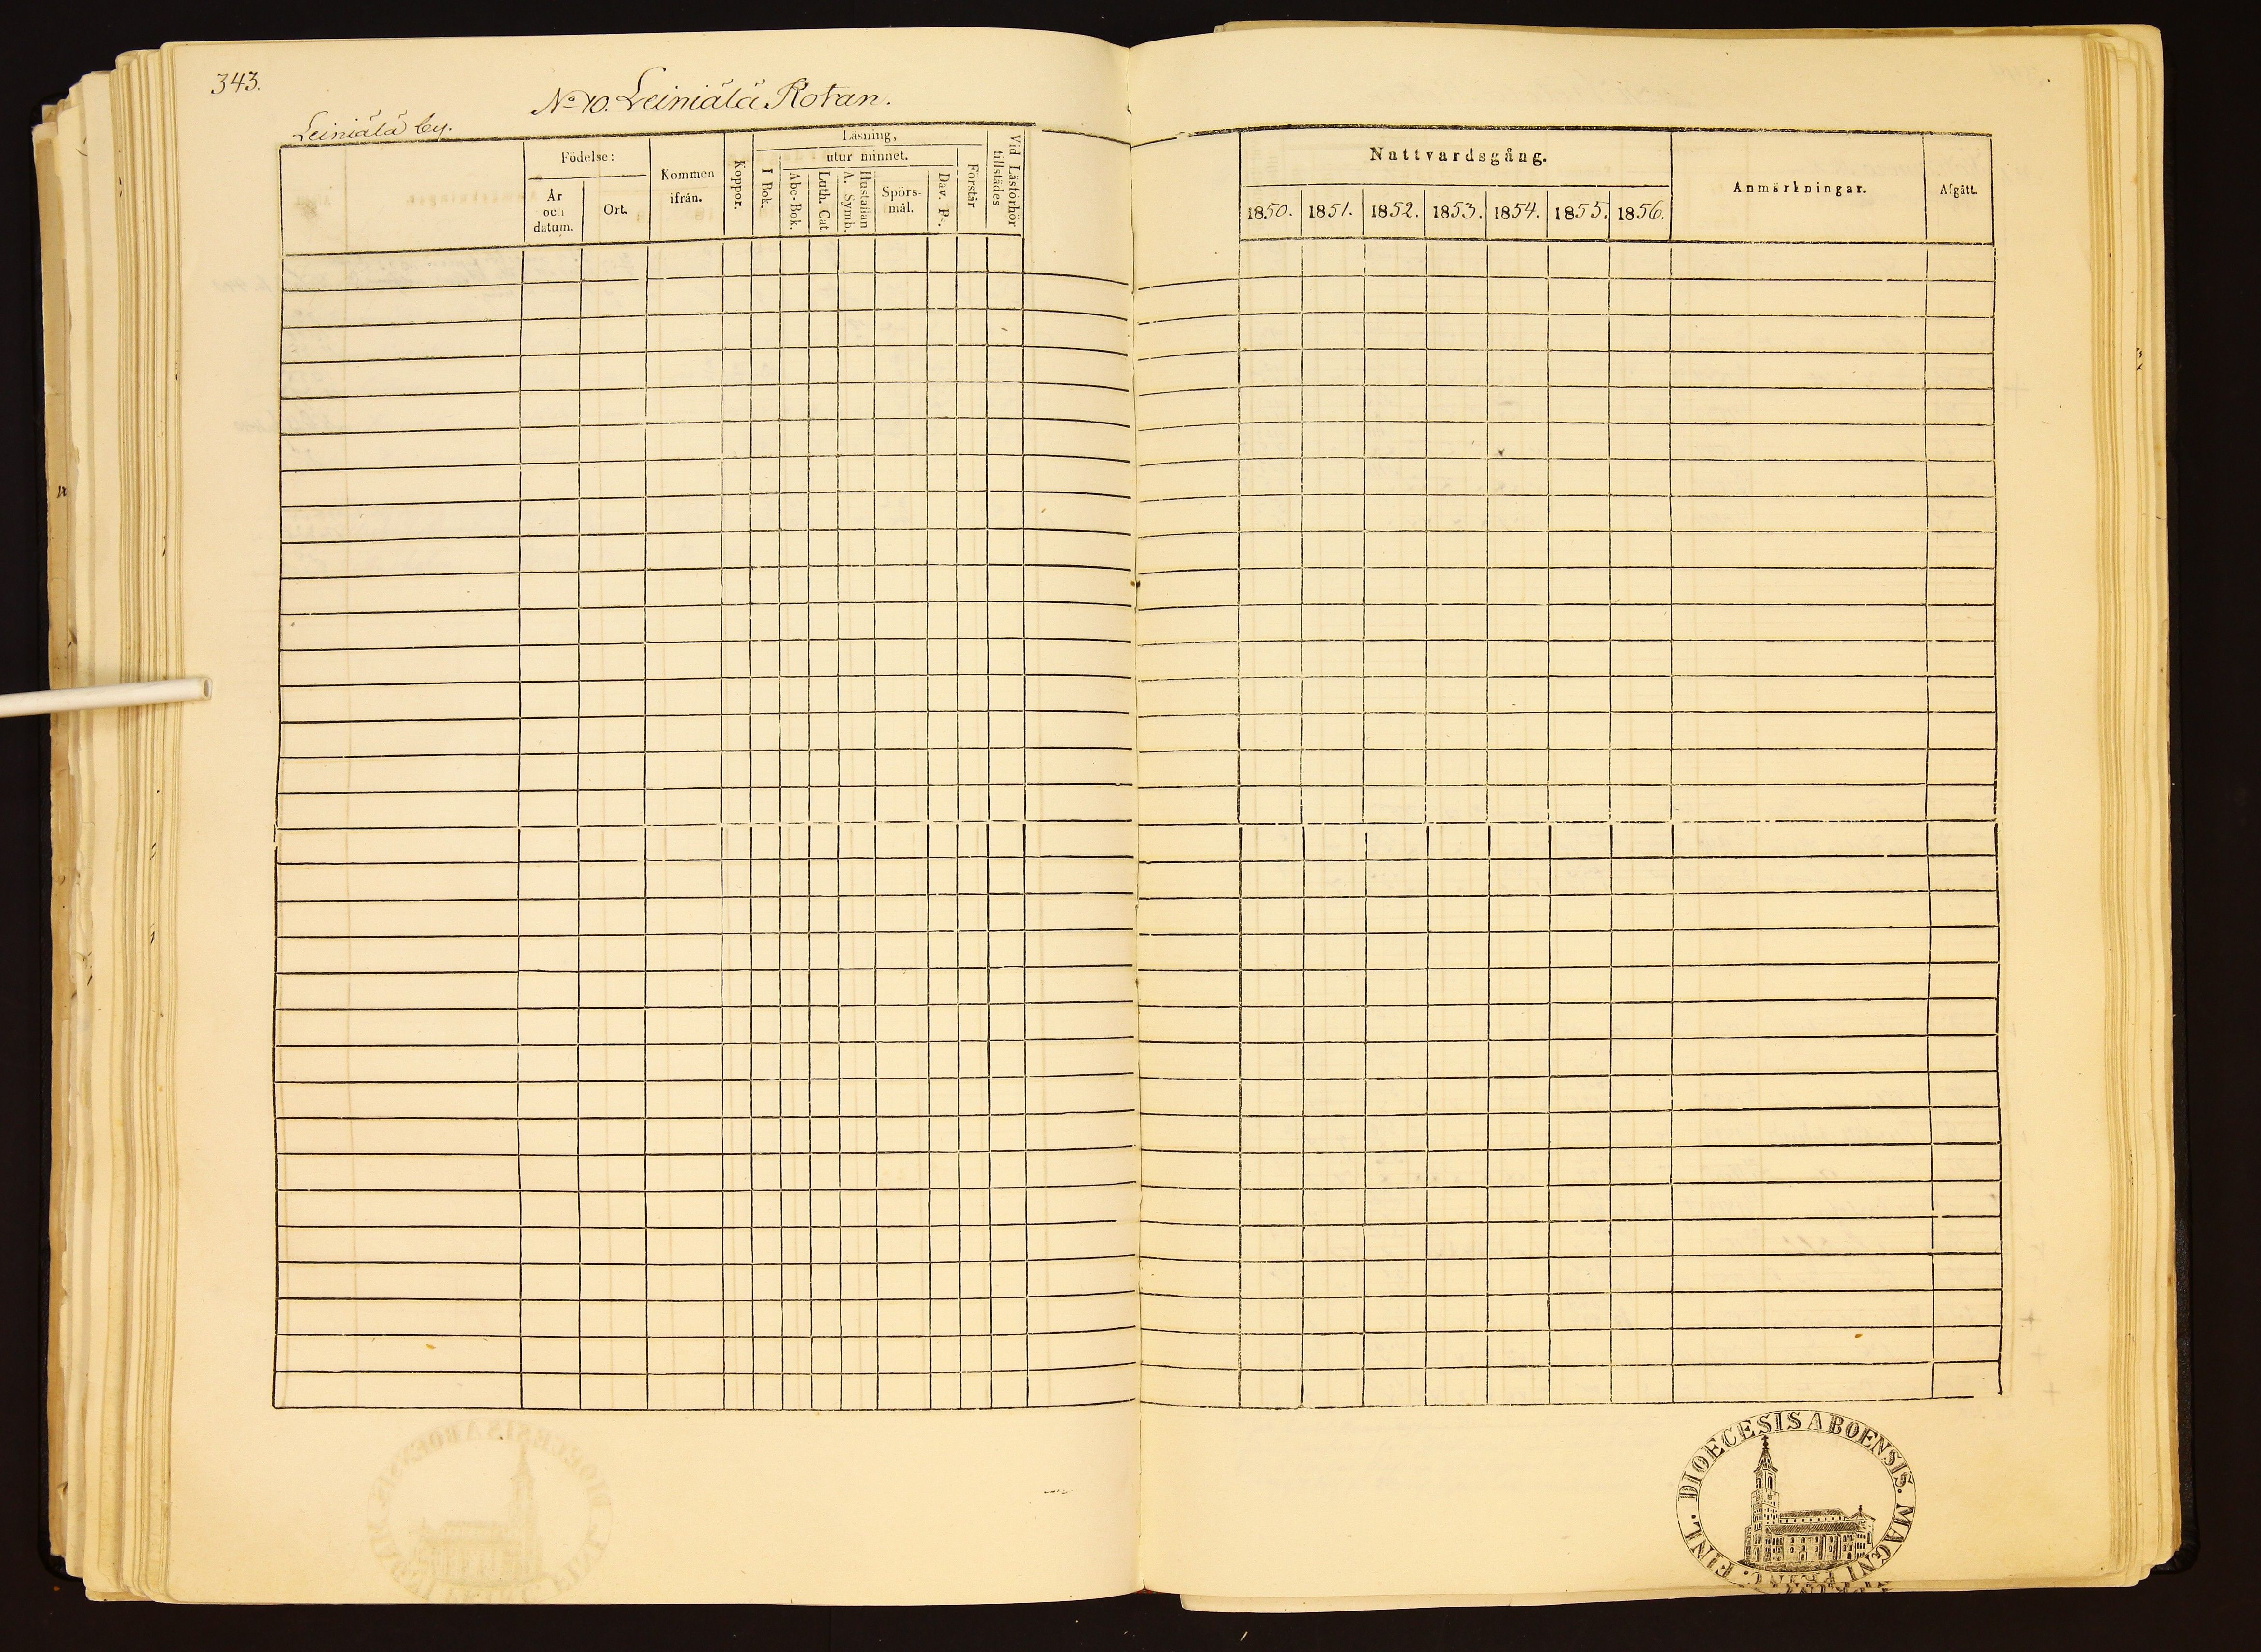 343.
No 10. Leiniälä Rotan.
Leiniälä by.
Födelse:
År
och
datum.
Ort.
Kommen
ifrån.
Koppor.
Läsning,
utur minnet.
I Bok.
Abc-Bok.
Luth. Cat
Hustaflan
A. Symb.
Spörs-
mål.
Dav. Ps.
Förstår
Vid Läsförhör
tillstädes
Nattvardsgång.
1850. 1851. 1852. 1853. 1854. 1855. 1856.
Anmärkningar.
Afgått.
DIOECESIS ABOENSIS. MAGNI PRINC. FINL.